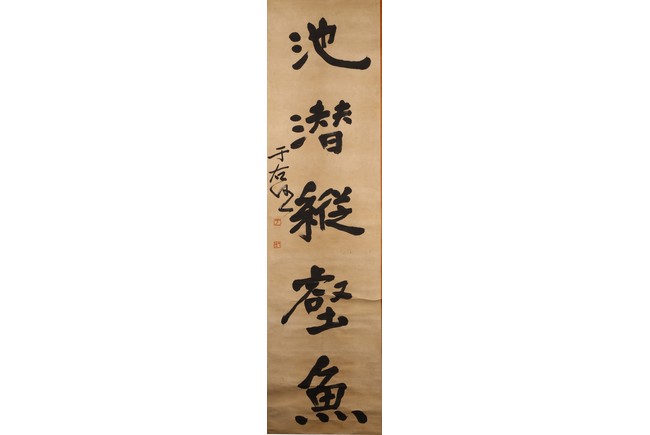 池潜縱壑魚
于右任